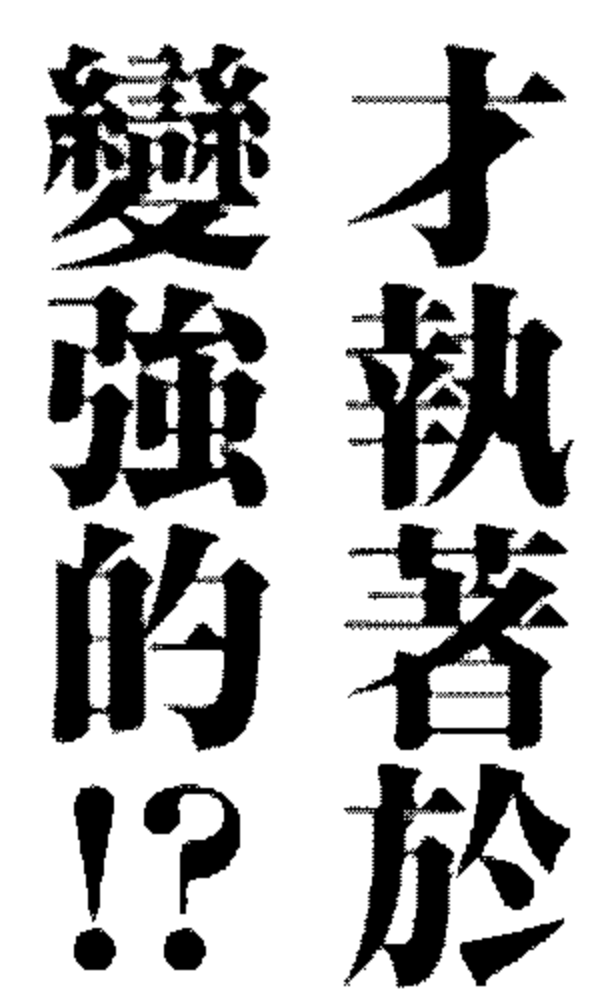 才執著於
變強的!?